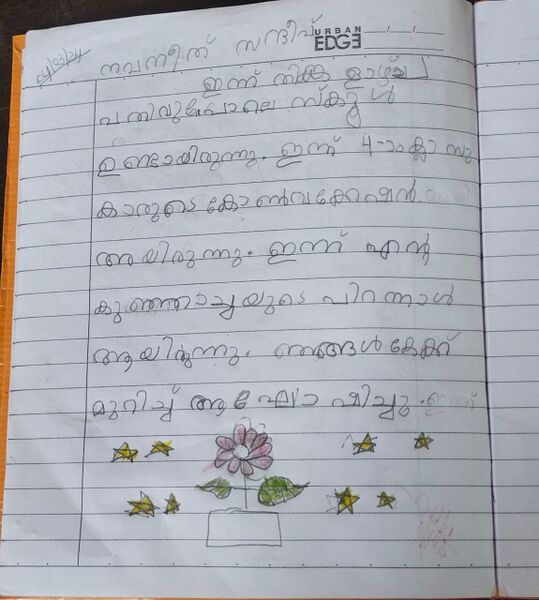 4/03/24
നവനീത് സന്ദീപ്
URBAN
EDGE
ഇന്ന് തിങ്കളാഴ്ച
പതിവുപോലെ സ്കൂൾ
ഉണ്ടായിരുന്നു. ഇന്ന് 4-ാം ക്ലാസു
കാരുടെ കോൺവക്കേഷൻ
ആയിരുന്നു. ഇന്ന് എന്റെ
കുഞ്ഞാച്ചയുടെ പിറന്നാൾ
ആയിരുന്നു. ഞങ്ങൾ കേക്ക്
മുറിച്ച് ആഘോഷിച്ചു.